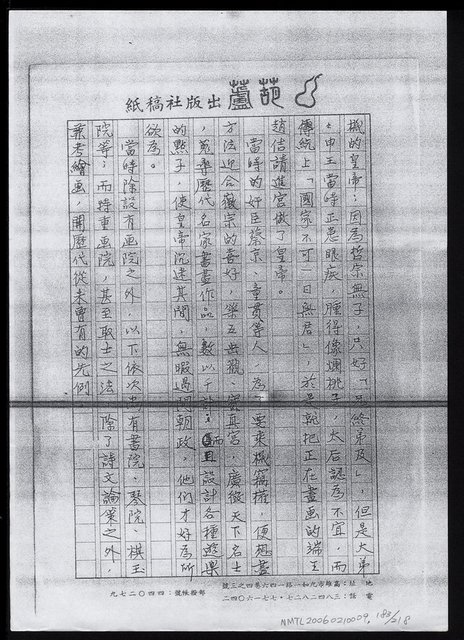 葫蘆出版社稿紙
機的皇帝：因為哲宗無子，只好「兄終弟及」，但是大弟
申王當時正患眼疾，腫得像爛桃子，太后認為不宜，而
傳統上「國家不可一日無君」，於是就把正在畫画的端王
趙佶請進宮做了皇帝。
當時的奸臣蔡京、童貫等人，為了要乘機竊權，便想盡
方法迎合徽宗的喜好，築五岳觀、寶真宮，廣徵天下名士
，蒐尋歷代名家書畫作品，數以千計；而且設計各種遊樂
的點子，使皇帝沉迷其間，無暇過問朝政，他們才好為所
欲為。
當時除設有画院之外，以下依次尚有書院、琴院、棋玉
院等；而特重画院，甚至取士之法，除了詩文論策之外，
兼考繪画，開歷代從未曾有的先例。
地址：高雄市九如一路一四六巷四之三號
電話：三八四二八二七‧七七一六〇四二
郵撥帳號：四四〇二七九
NMTL20060210009 183/218